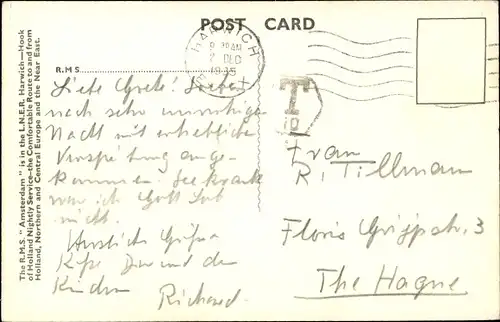 POST CARD
The R.M.S. "Amsterdam" is in the L.N.E.R. Harwich—Hook
of Holland Nightly Service—the Comfortable Route to and from
Holland, Northern and Central Europe and the Near East.
HARWICH
DEC
R.M.S.
T
10
Liebe Grete! Soeben
nach sehr unruhiger
Nacht mit erheblicher
Verspätung ange-
kommen. Seekrank
war ich Gott Lob
nicht.
Herzliche Grüsse
Küsse Dir und den
Kindern
Richard
Frau
R. Tillman
Floris Grijpstr. 3
The Hague